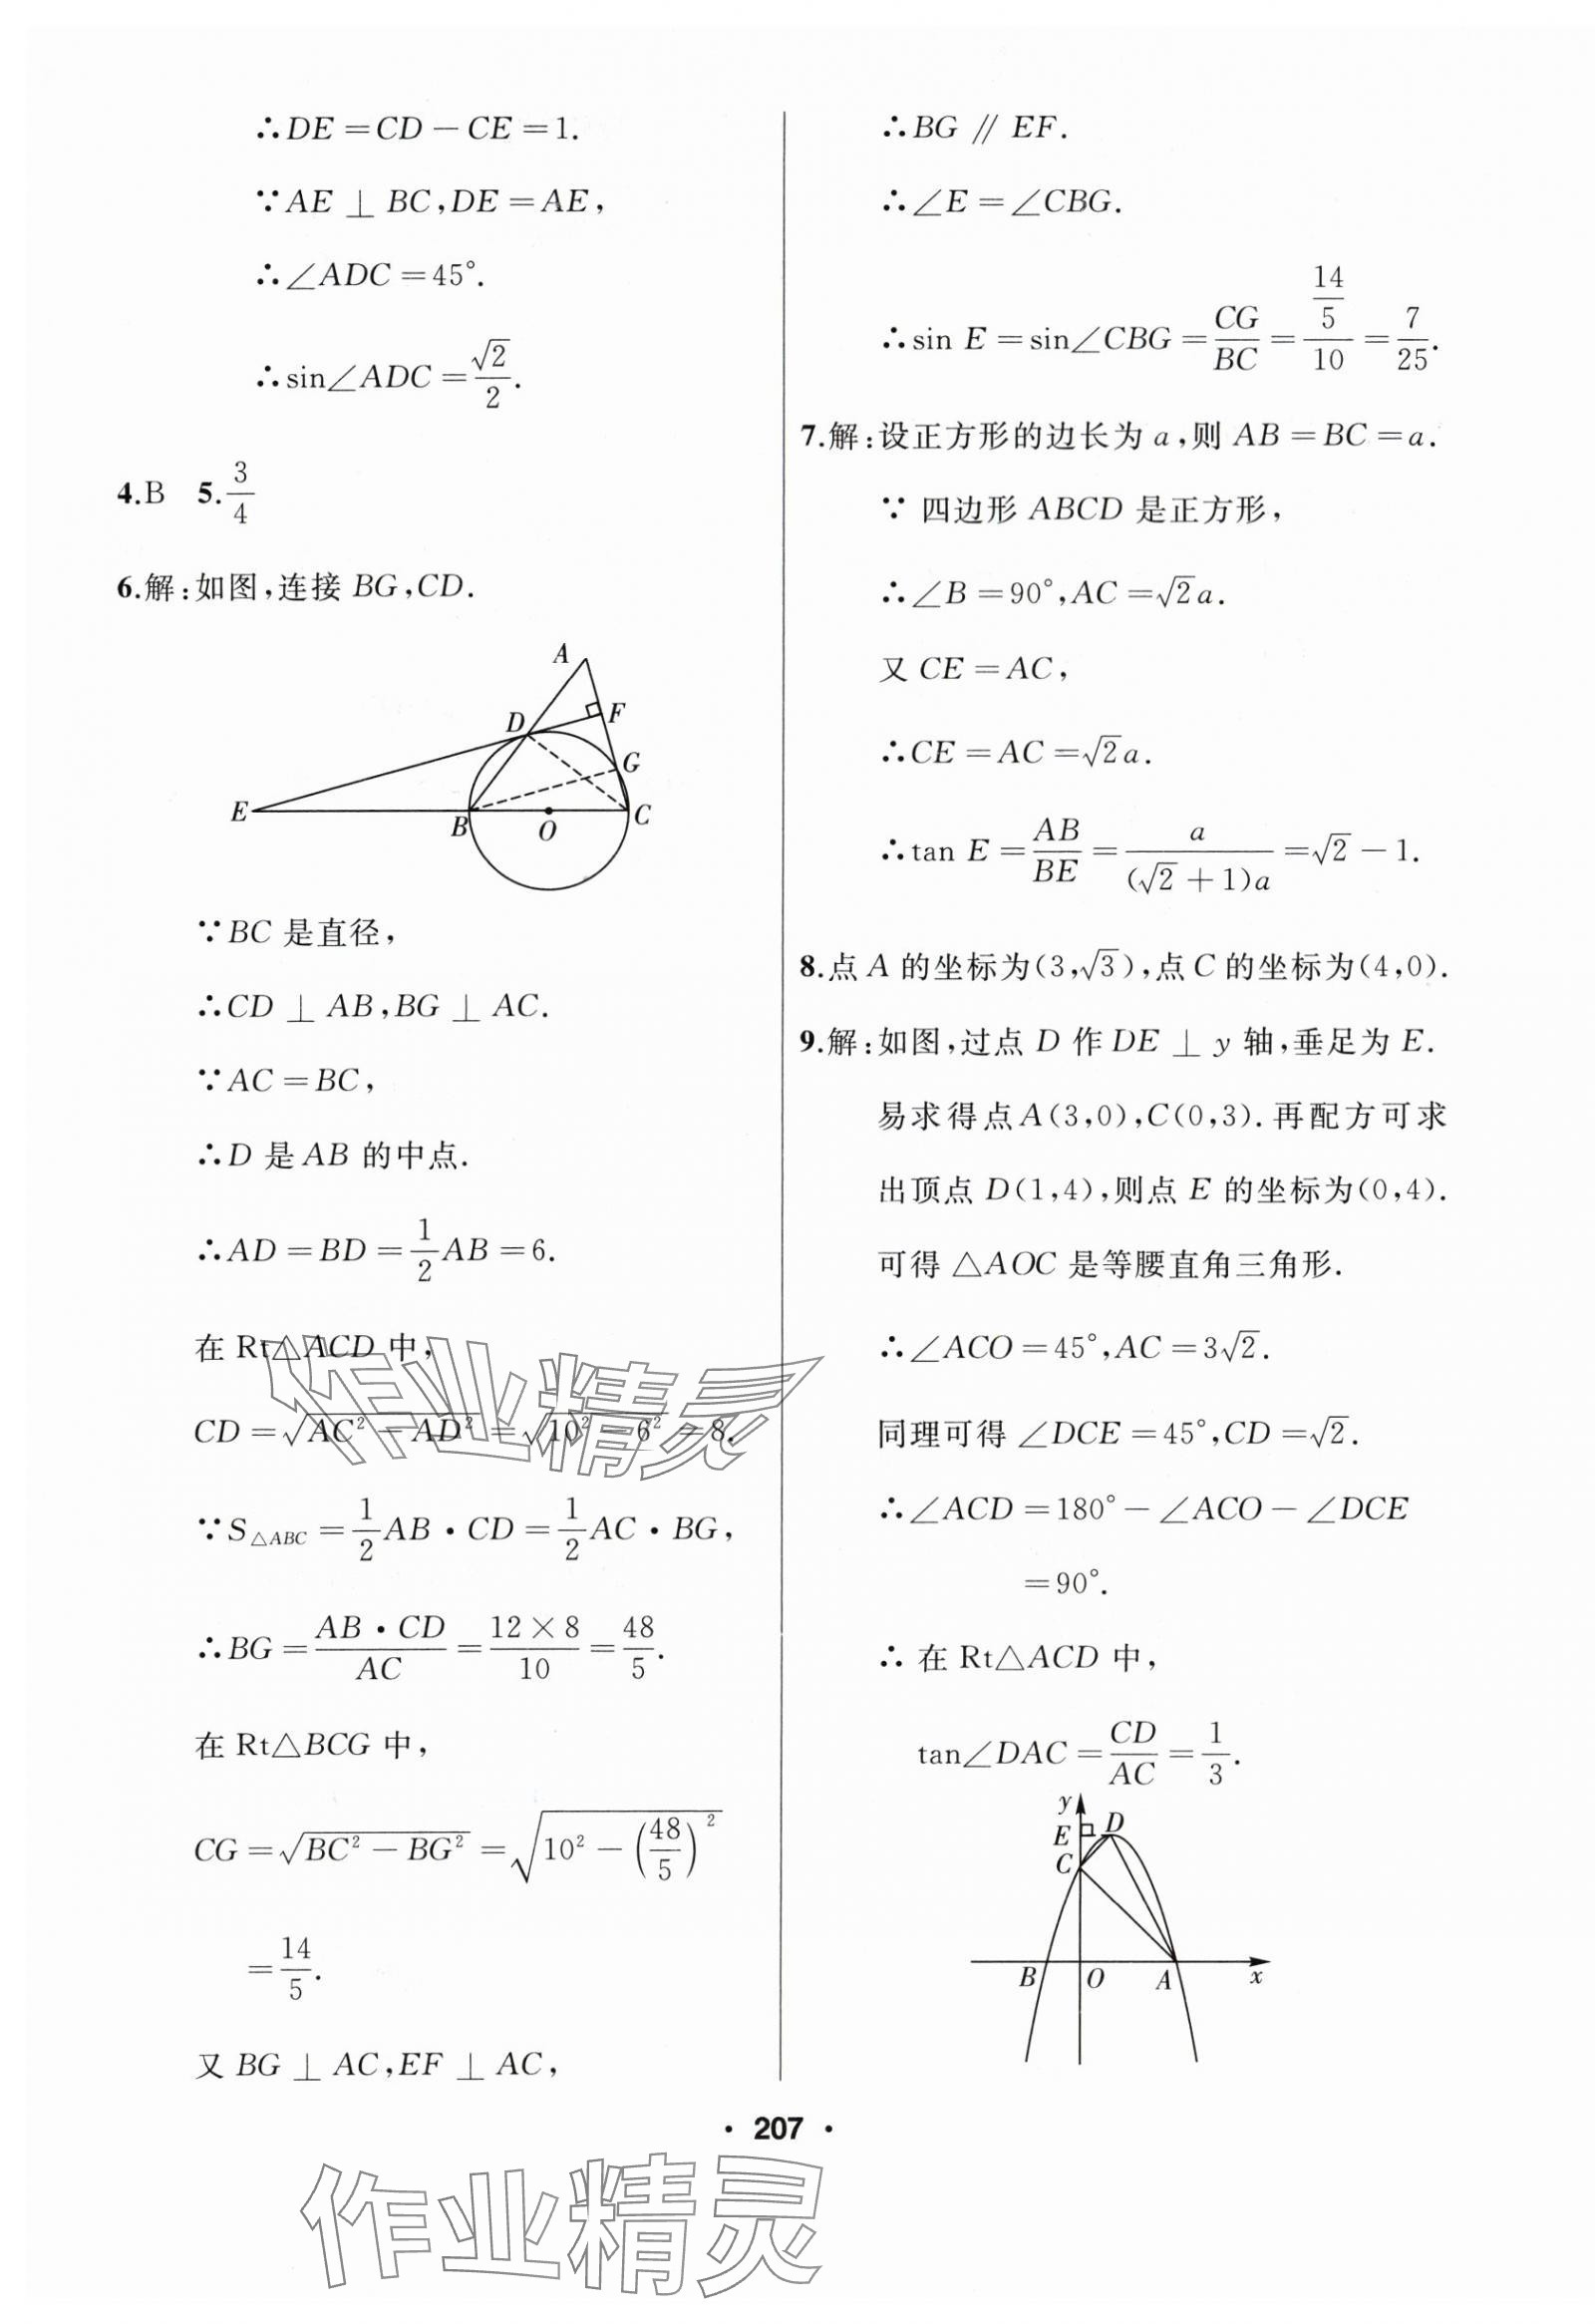 ∴DE＝CD－CE＝1.
∵AE⊥BC,DE＝AE,
∴∠ADC＝45°.
∴sin∠ADC＝√2/2.
4.B 5.3/4
6.解:如图,连接 BG,CD.
A
D
F
G
E
B
O
C
∵BC 是直径,
∴CD⊥AB,BG⊥AC.
∵AC＝BC,
∴D 是AB 的中点.
∴AD＝BD＝1/2AB＝6.
在 Rt△ACD 中,
CD＝√(AC²－AD²)＝√(10²－6²)＝8.
∵S△ABC＝1/2AB·CD＝1/2AC·BG,
∴BG＝AB·CD/AC＝12×8/10＝48/5.
在 Rt△BCG 中,
CG＝√(BC²－BG²)＝√(10²－(48/5)²)
＝14/5.
又 BG⊥AC,EF⊥AC,
∴BG∥EF.
∴∠E＝∠CBG.
∴sin E＝sin∠CBG＝CG/BC＝(14/5)/10＝7/25.
7.解:设正方形的边长为 a,则 AB＝BC＝a.
∵ 四边形 ABCD 是正方形,
∴∠B＝90°,AC＝√2a.
又 CE＝AC,
∴CE＝AC＝√2a.
∴tan E＝AB/BE＝a/((√2＋1)a)＝√2－1.
8.点 A 的坐标为(3,√3),点 C 的坐标为(4,0).
9.解:如图,过点 D 作 DE⊥y 轴,垂足为 E.
易求得点A(3,0),C(0,3).再配方可求
出顶点 D(1,4),则点 E 的坐标为(0,4).
可得 △AOC 是等腰直角三角形.
∴∠ACO＝45°,AC＝3√2.
同理可得 ∠DCE＝45°,CD＝√2.
∴∠ACD＝180°－∠ACO－∠DCE
＝90°.
∴ 在 Rt△ACD 中,
tan∠DAC＝CD/AC＝1/3.
y
E
D
C
B
O
A
x
· 207 ·
作业精灵
作业精灵